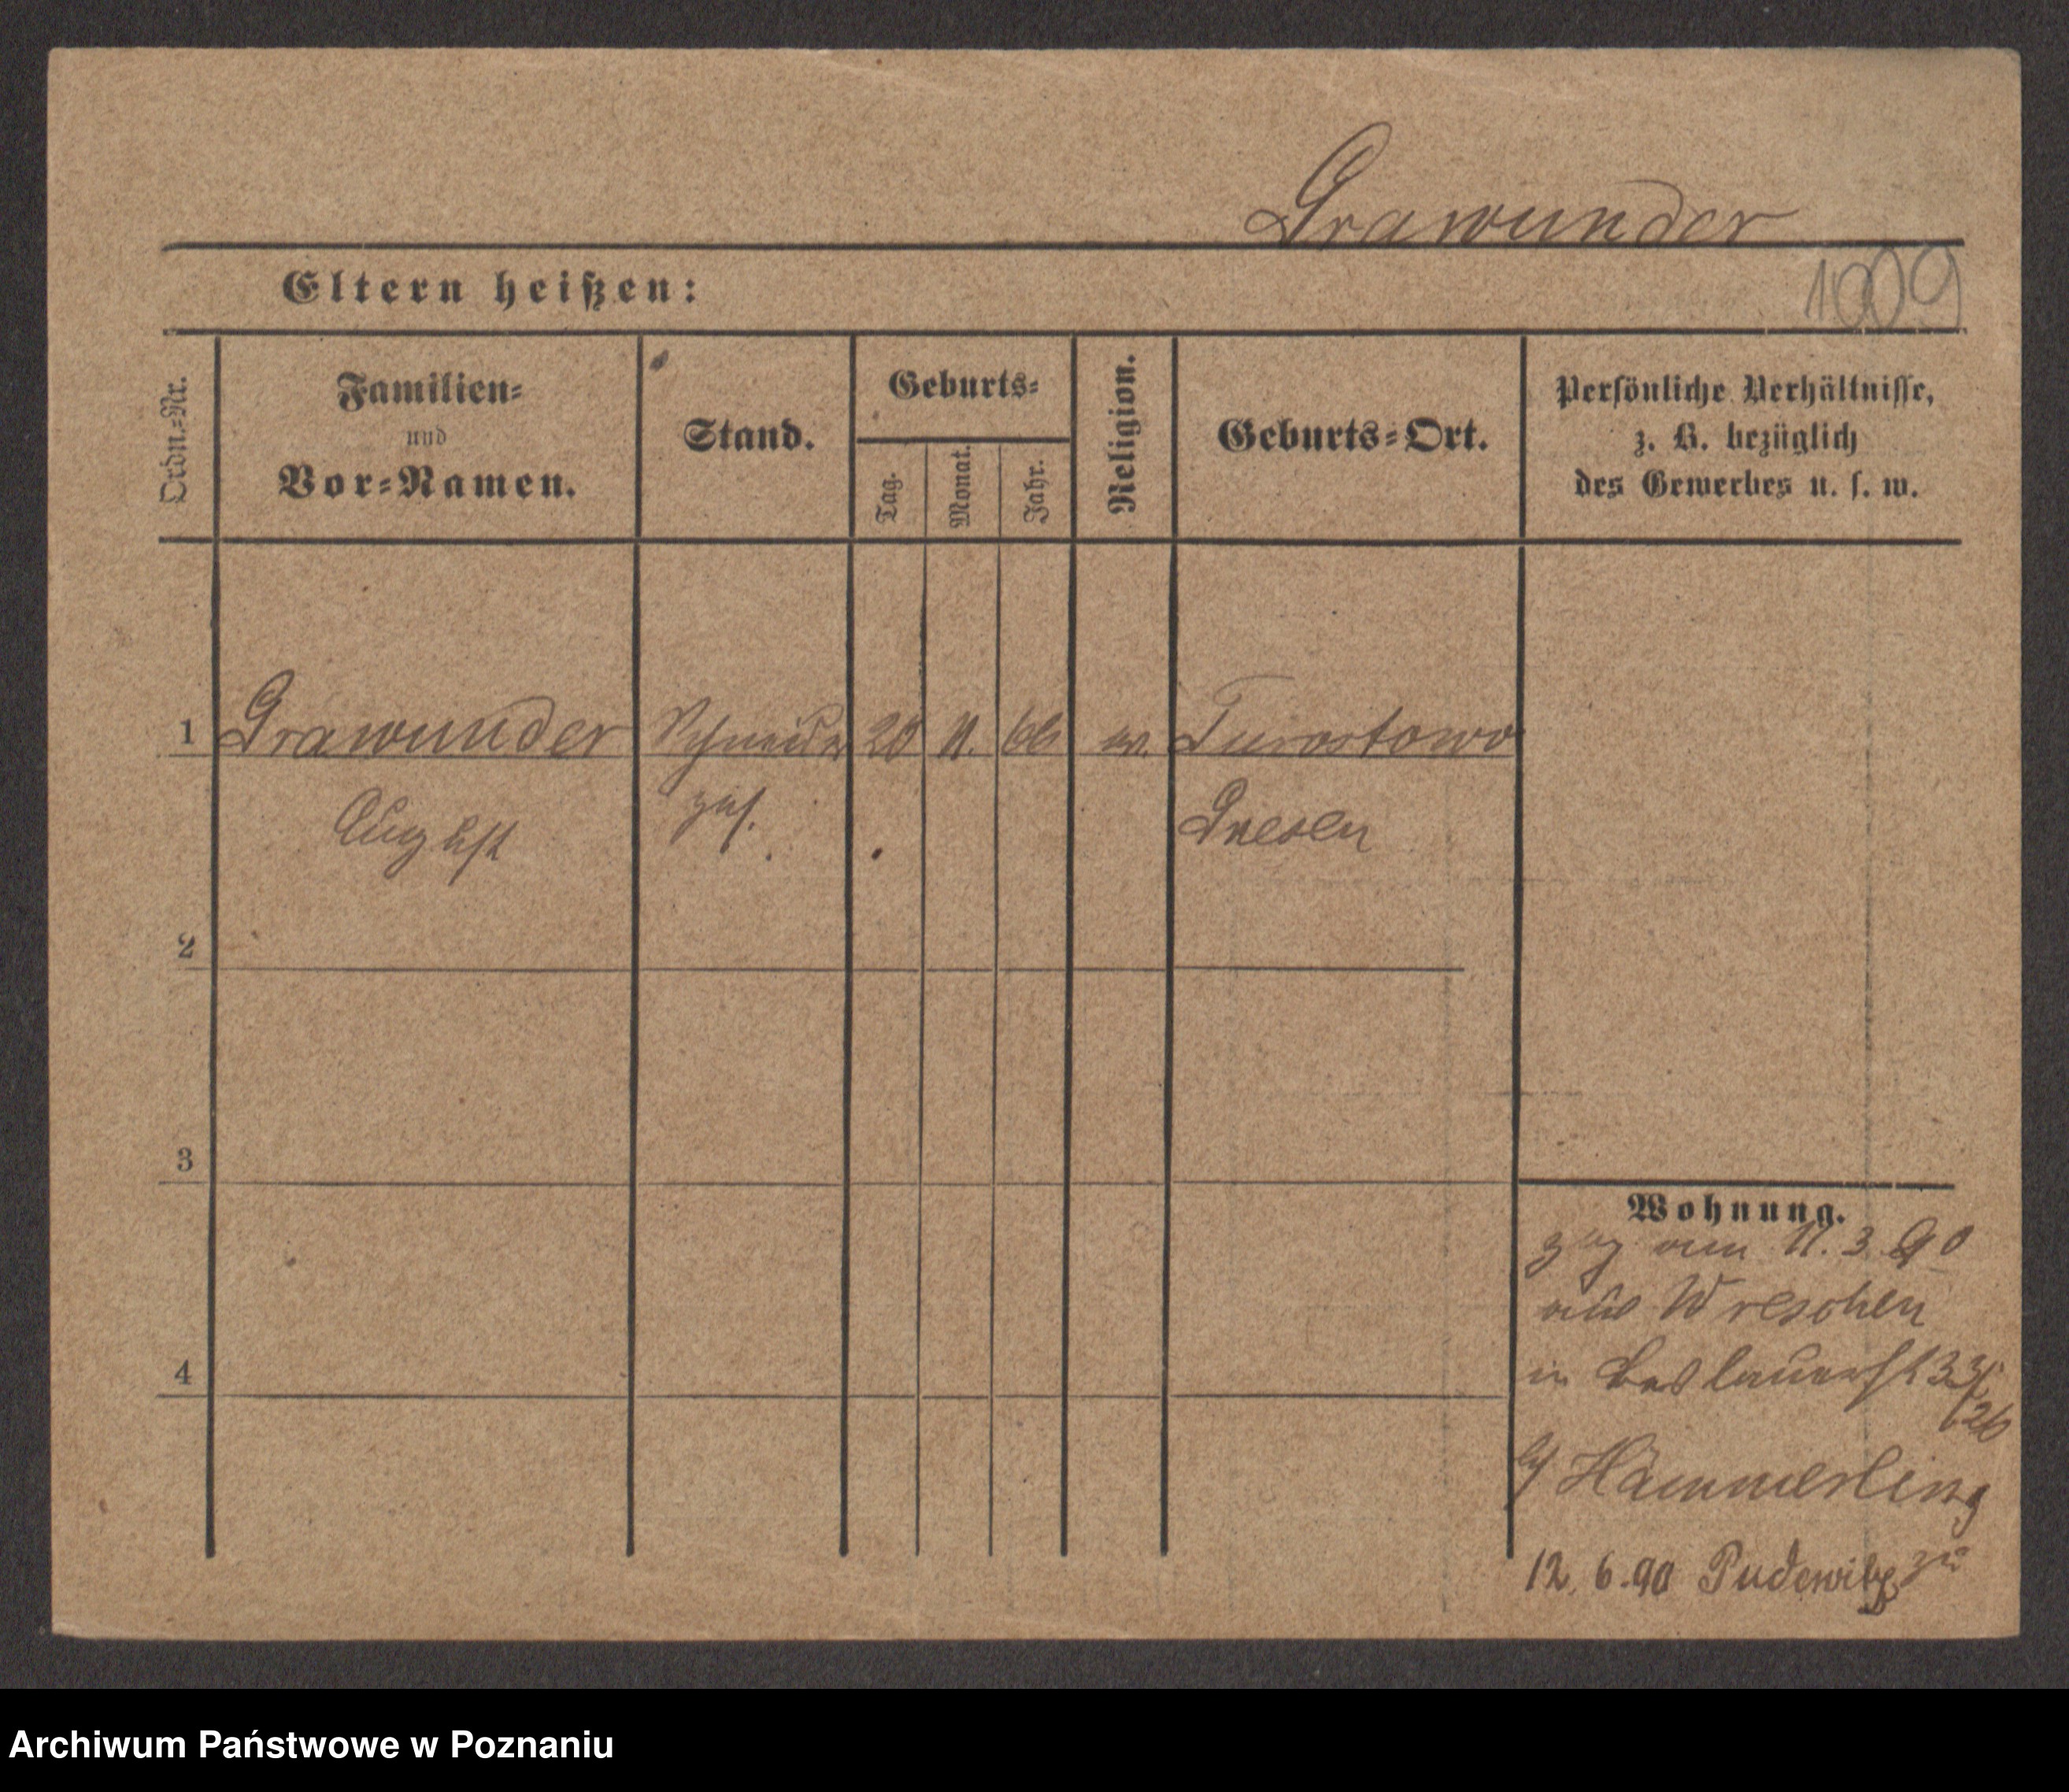 Grawunder
Eltern heißen:
1009
Ordn.-Nr.
Familien-
und
Vor-Namen.
Stand.
Geburts-
Tag.
Monat.
Jahr.
Religion.
Geburts-Ort.
Persönliche Verhältnisse,
z. B. bezüglich
des Gewerbes u. s. w.
1 Grawunder Schneider 20 11. 66 ev. Turostowo
August ges. Gnesen
2
3
4
Wohnung.
zug am 11.3.90
aus Wreschen
in Breslauerst 33/
26
b/ Hämmerling
12.6.90 Pudewitz zu
Archiwum Państwowe w Poznaniu